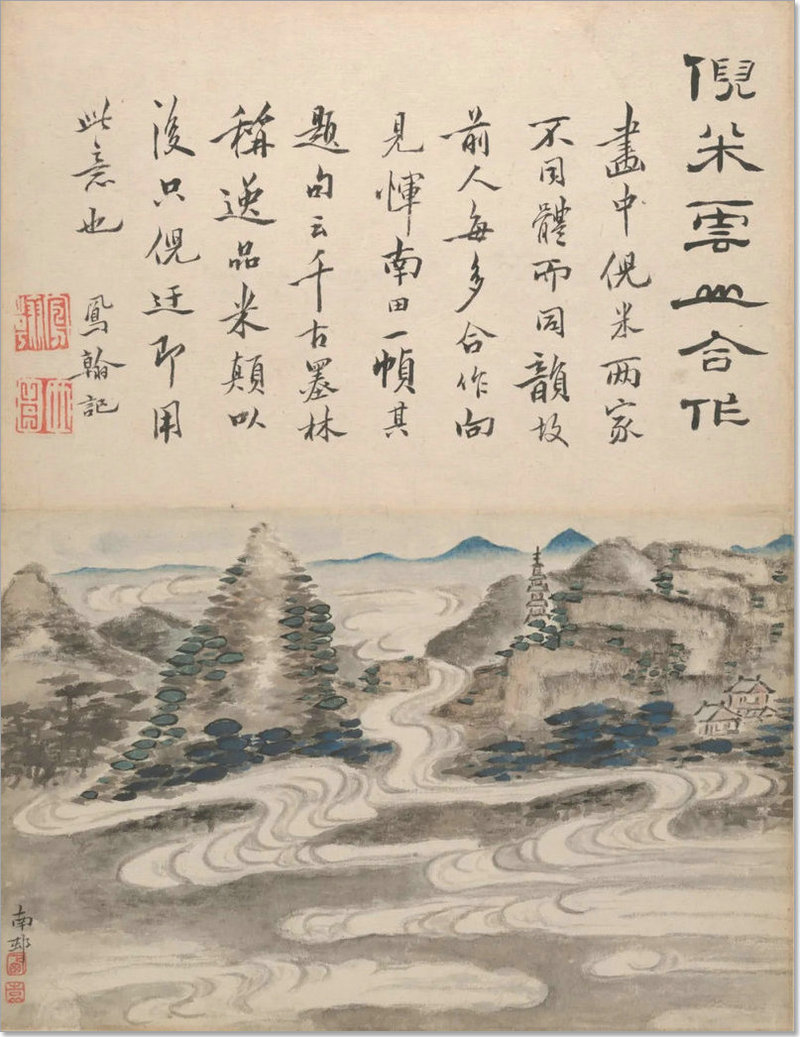 倪米雲山合作
畫中倪米兩家
不同體而同韻故
前人每多合作向
見惲南田一幀其
題句云千古墨林
稱逸品米顛以
後只倪迂即用
此意也
鳳翰記
南邨